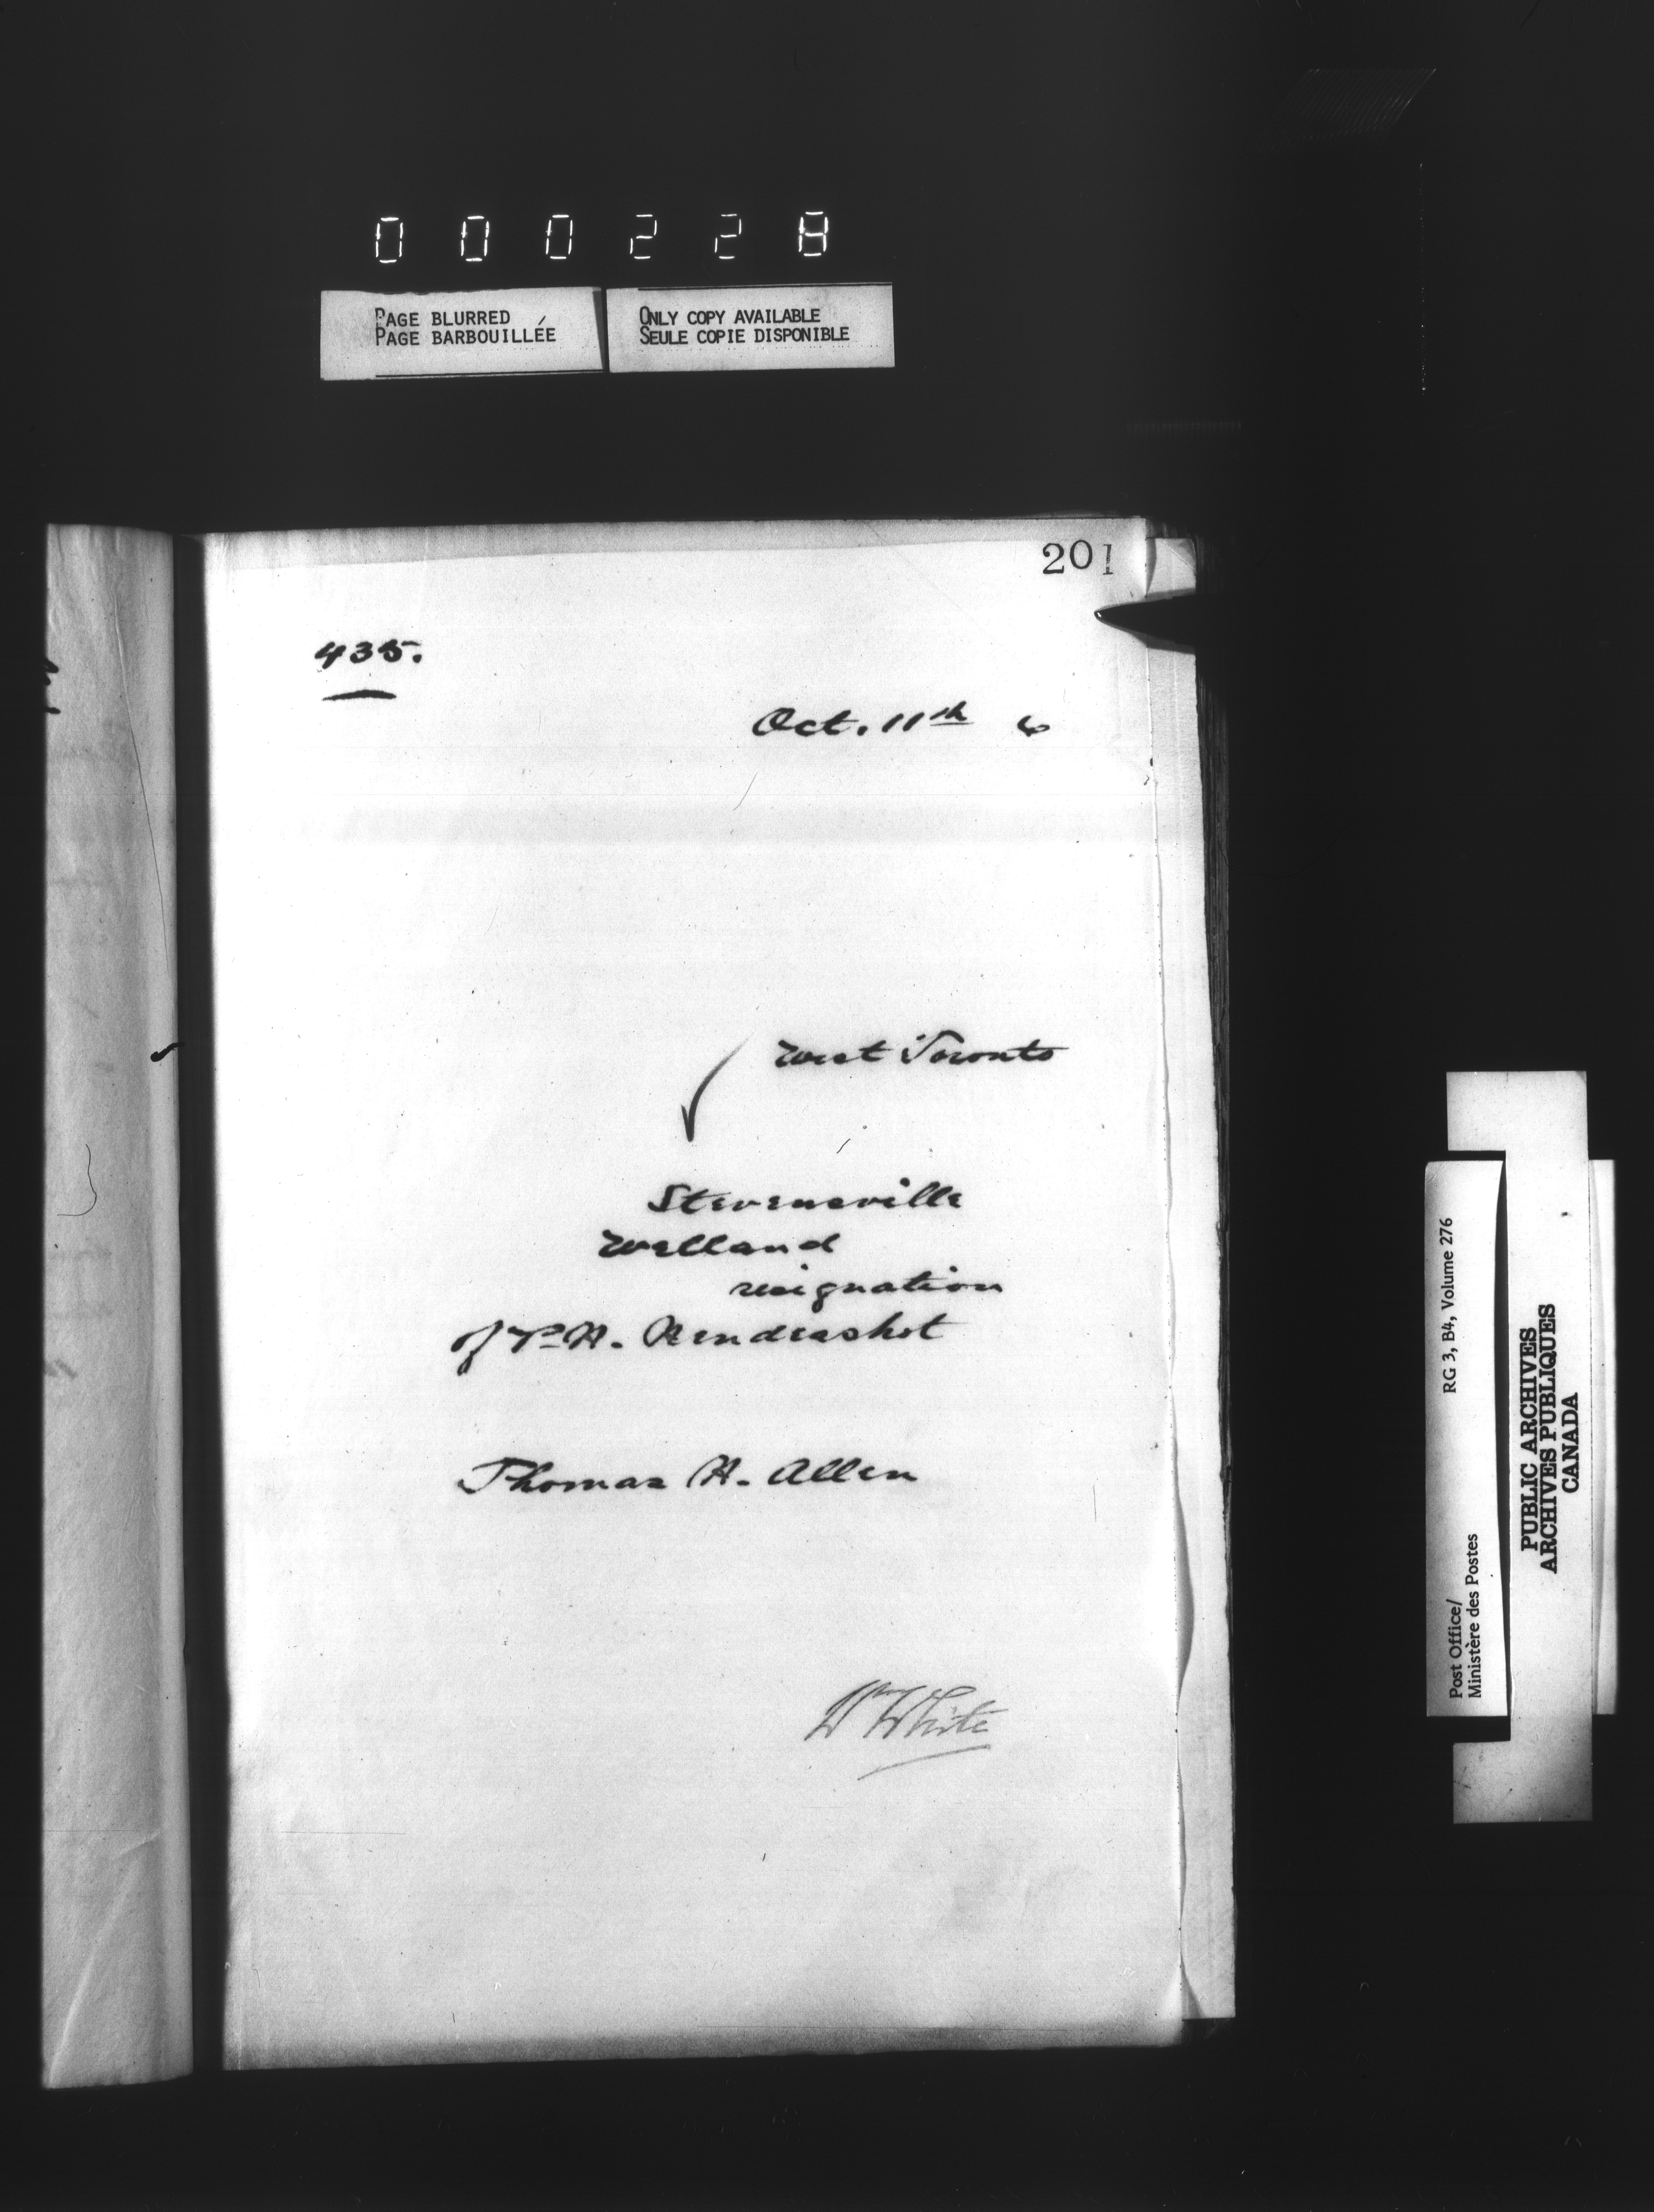 000228
PAGE BLURRED
PAGE BARBOUILLÉE
ONLY COPY AVAILABLE
SEULE COPIE DISPONIBLE
201
435.
Oct. 11th 6
West Toronto
Stevensville
Welland
resignation
of P. H. Hendershot
Thomas H. Allen
Wm White
Post Office/
Ministère des Postes
RG 3, B4, Volume 276
PUBLIC ARCHIVES
ARCHIVES PUBLIQUES
CANADA